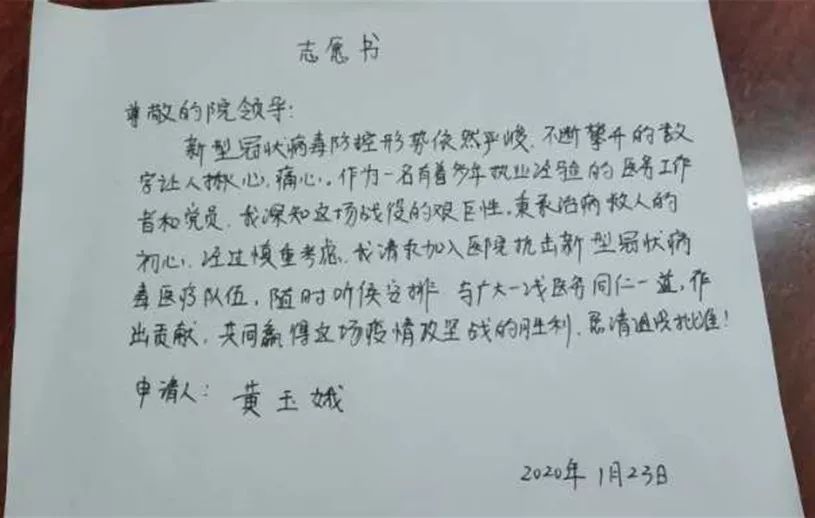 志愿书
尊敬的院领导:
新型冠状病毒防控形势依然严峻、不断攀升的数
字让人揪心、痛心。作为一名有着多年执业经验的医务工作
者和党员、我深知这场战役的艰巨性,秉承治病救人的
初心、经过慎重考虑、我请求加入医院抗击新型冠状病
毒医疗队伍,随时听候安排 与广大一线医务同仁一道,作
出贡献,共同赢得这场疫情攻坚战的胜利、恳请组织批准!
申请人: 黄玉娥
2020年1月23日